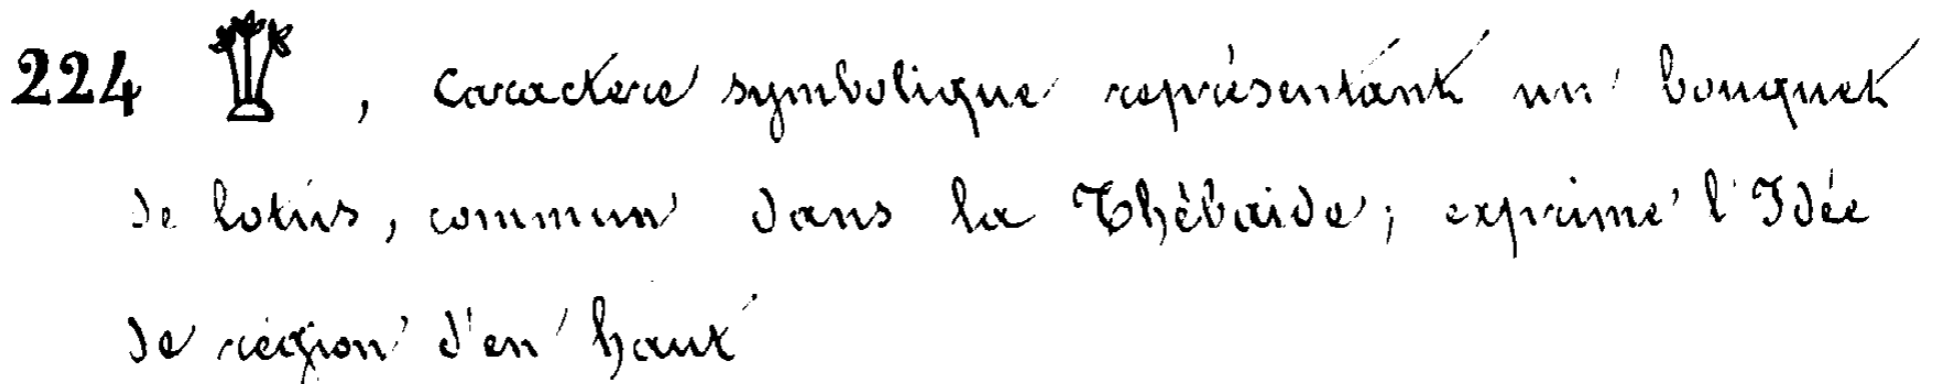 224 , caractère symbolique représentant un bouquet
de lotus, commun dans la Thébaide; exprime l'Idée
de région d'en haut